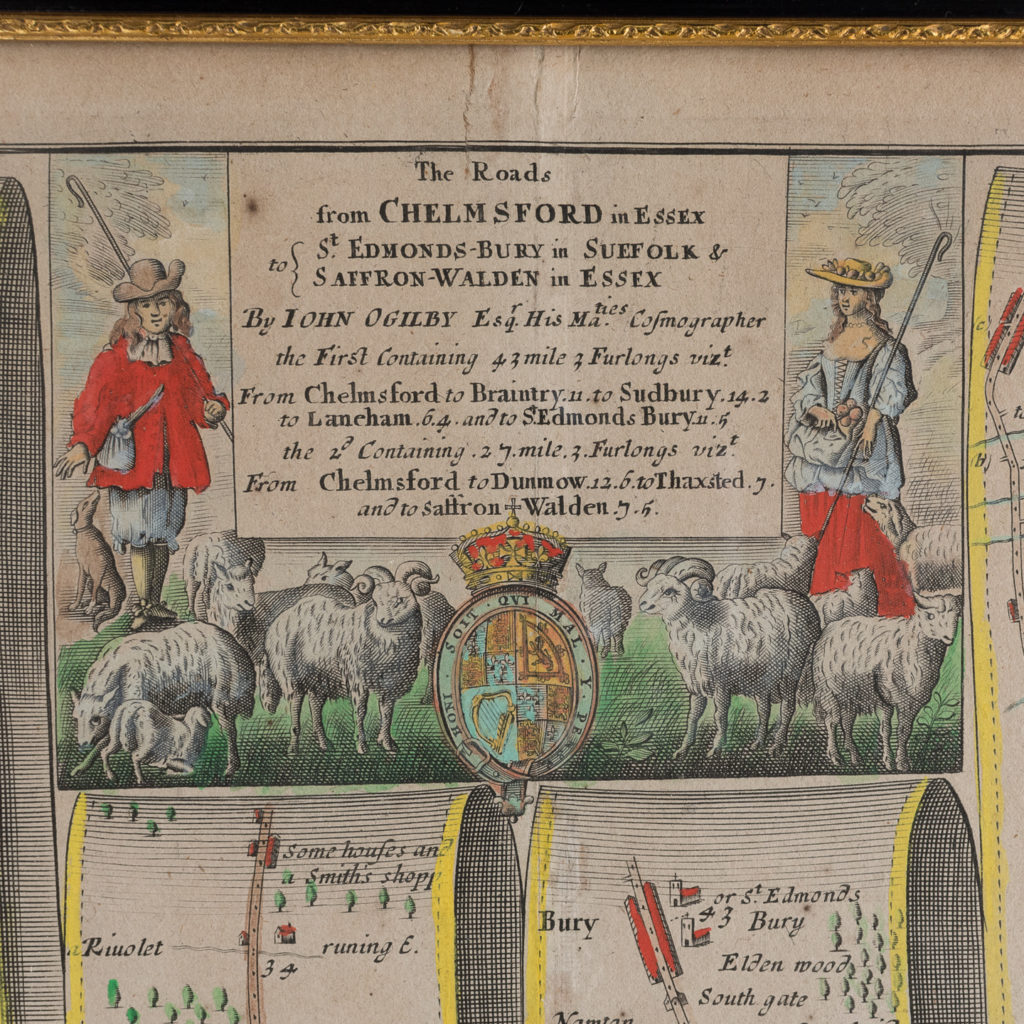 The Roads
from CHELMSFORD in ESSEX
to { St. EDMONDS-BURY in SUFFOLK &
SAFFRON-WALDEN in ESSEX
By IOHN OGILBY Esqr. His Ma.ties Cosmographer
the First Containing 43 mile 3 Furlongs vizt.
From Chelmsford to Braintry.11. to Sudbury.14.2
to Laneham.6.4. and to St. Edmonds Bury.11.5
the 2d Containing .27. mile.3. Furlongs vizt.
From Chelmsford to Dunmow.12.6. to Thaxsted.7.
and to Saffron Walden.7.5.
HONI · SOIT · QVI · MAL · Y · PENSE
(c)
(b)
Some houses and
a Smith's shopp
a Rivolet
runing E.
34
Bury
or St. Edmonds
43 Bury
Elden wood
South gate